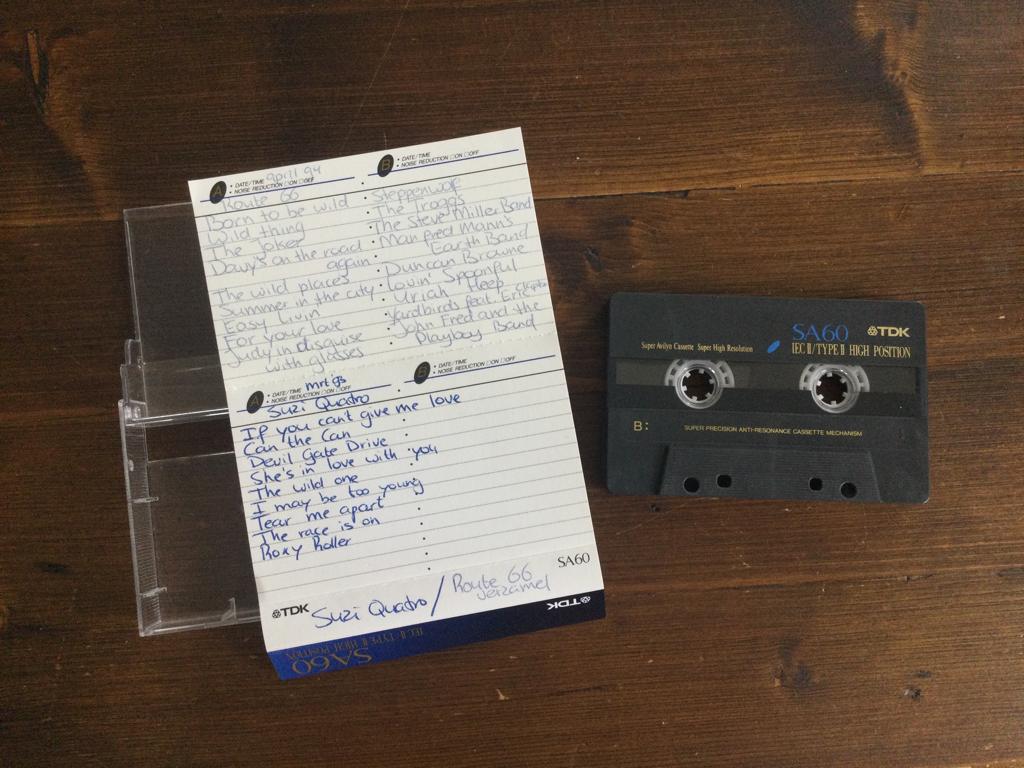 A • DATE/TIME april 94 B • DATE/TIME
• NOISE REDUCTION □ON □OFF • NOISE REDUCTION □ON □OFF
Route 66
Born to be wild • Steppenwolf
Wild thing • The Troggs
The Joker • The Steve Miller Band
Davy's on the road • Manfred Mann's
again • Earth Band
The wild places • Duncan Browne
Summer in the city • Lovin' Spoonful
Easy Livin • Uriah Heep
For your love • Yardbirds feat. Eric Clapton
Judy in disguise • John Fred and the
with glasses • Playboy Band
A • DATE/TIME mrt 95 B • DATE/TIME
• NOISE REDUCTION □ON □OFF • NOISE REDUCTION □ON □OFF
Suzi Quatro
If you can't give me love
Can the Can
Devil Gate Drive
She's in love with you
The wild one
I may be too young
Tear me apart
The race is on
Roxy Roller
SA60
TDK Suzi Quatro / Route 66
verzamel
TDK
IEC II/TYPE II HIGH POSITION
SA60
SA60 TDK
Super Avilyn Cassette Super High Resolution IEC II/TYPE II HIGH POSITION
B: SUPER PRECISION ANTI-RESONANCE CASSETTE MECHANISM